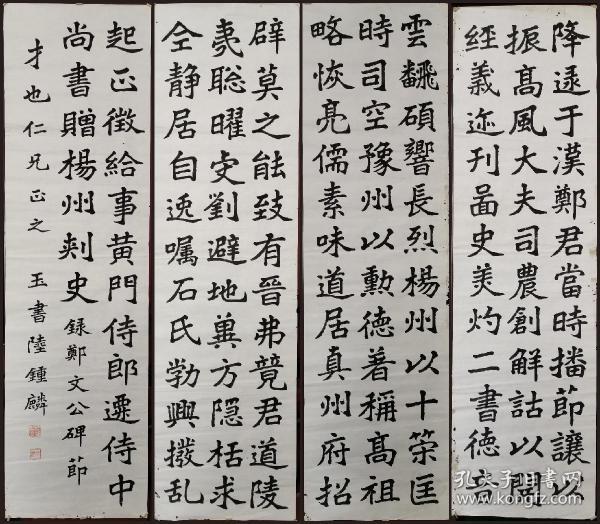 降逯于漢鄭君當時播節讓以
振髙風大夫司農創解詁以開
經義迹刋啚史羙灼二書徳音
雲飜碩響長烈楊州以十策匡
時司空豫州以勲徳著稱髙祖
略恢亮儒素味道居真州府招
辟莫之能致有晉弗竟君道陵
夷聡曜叏劉避地兾方隐栝求
仝静居自逸嘱石氏勃興撥乱
起正徵給事黃門侍郎遷侍中
尚書贈楊州刺史 録鄭文公碑節
才也仁兄正之 玉書陸鍾麟
孔夫子旧书网
www.kongfz.com